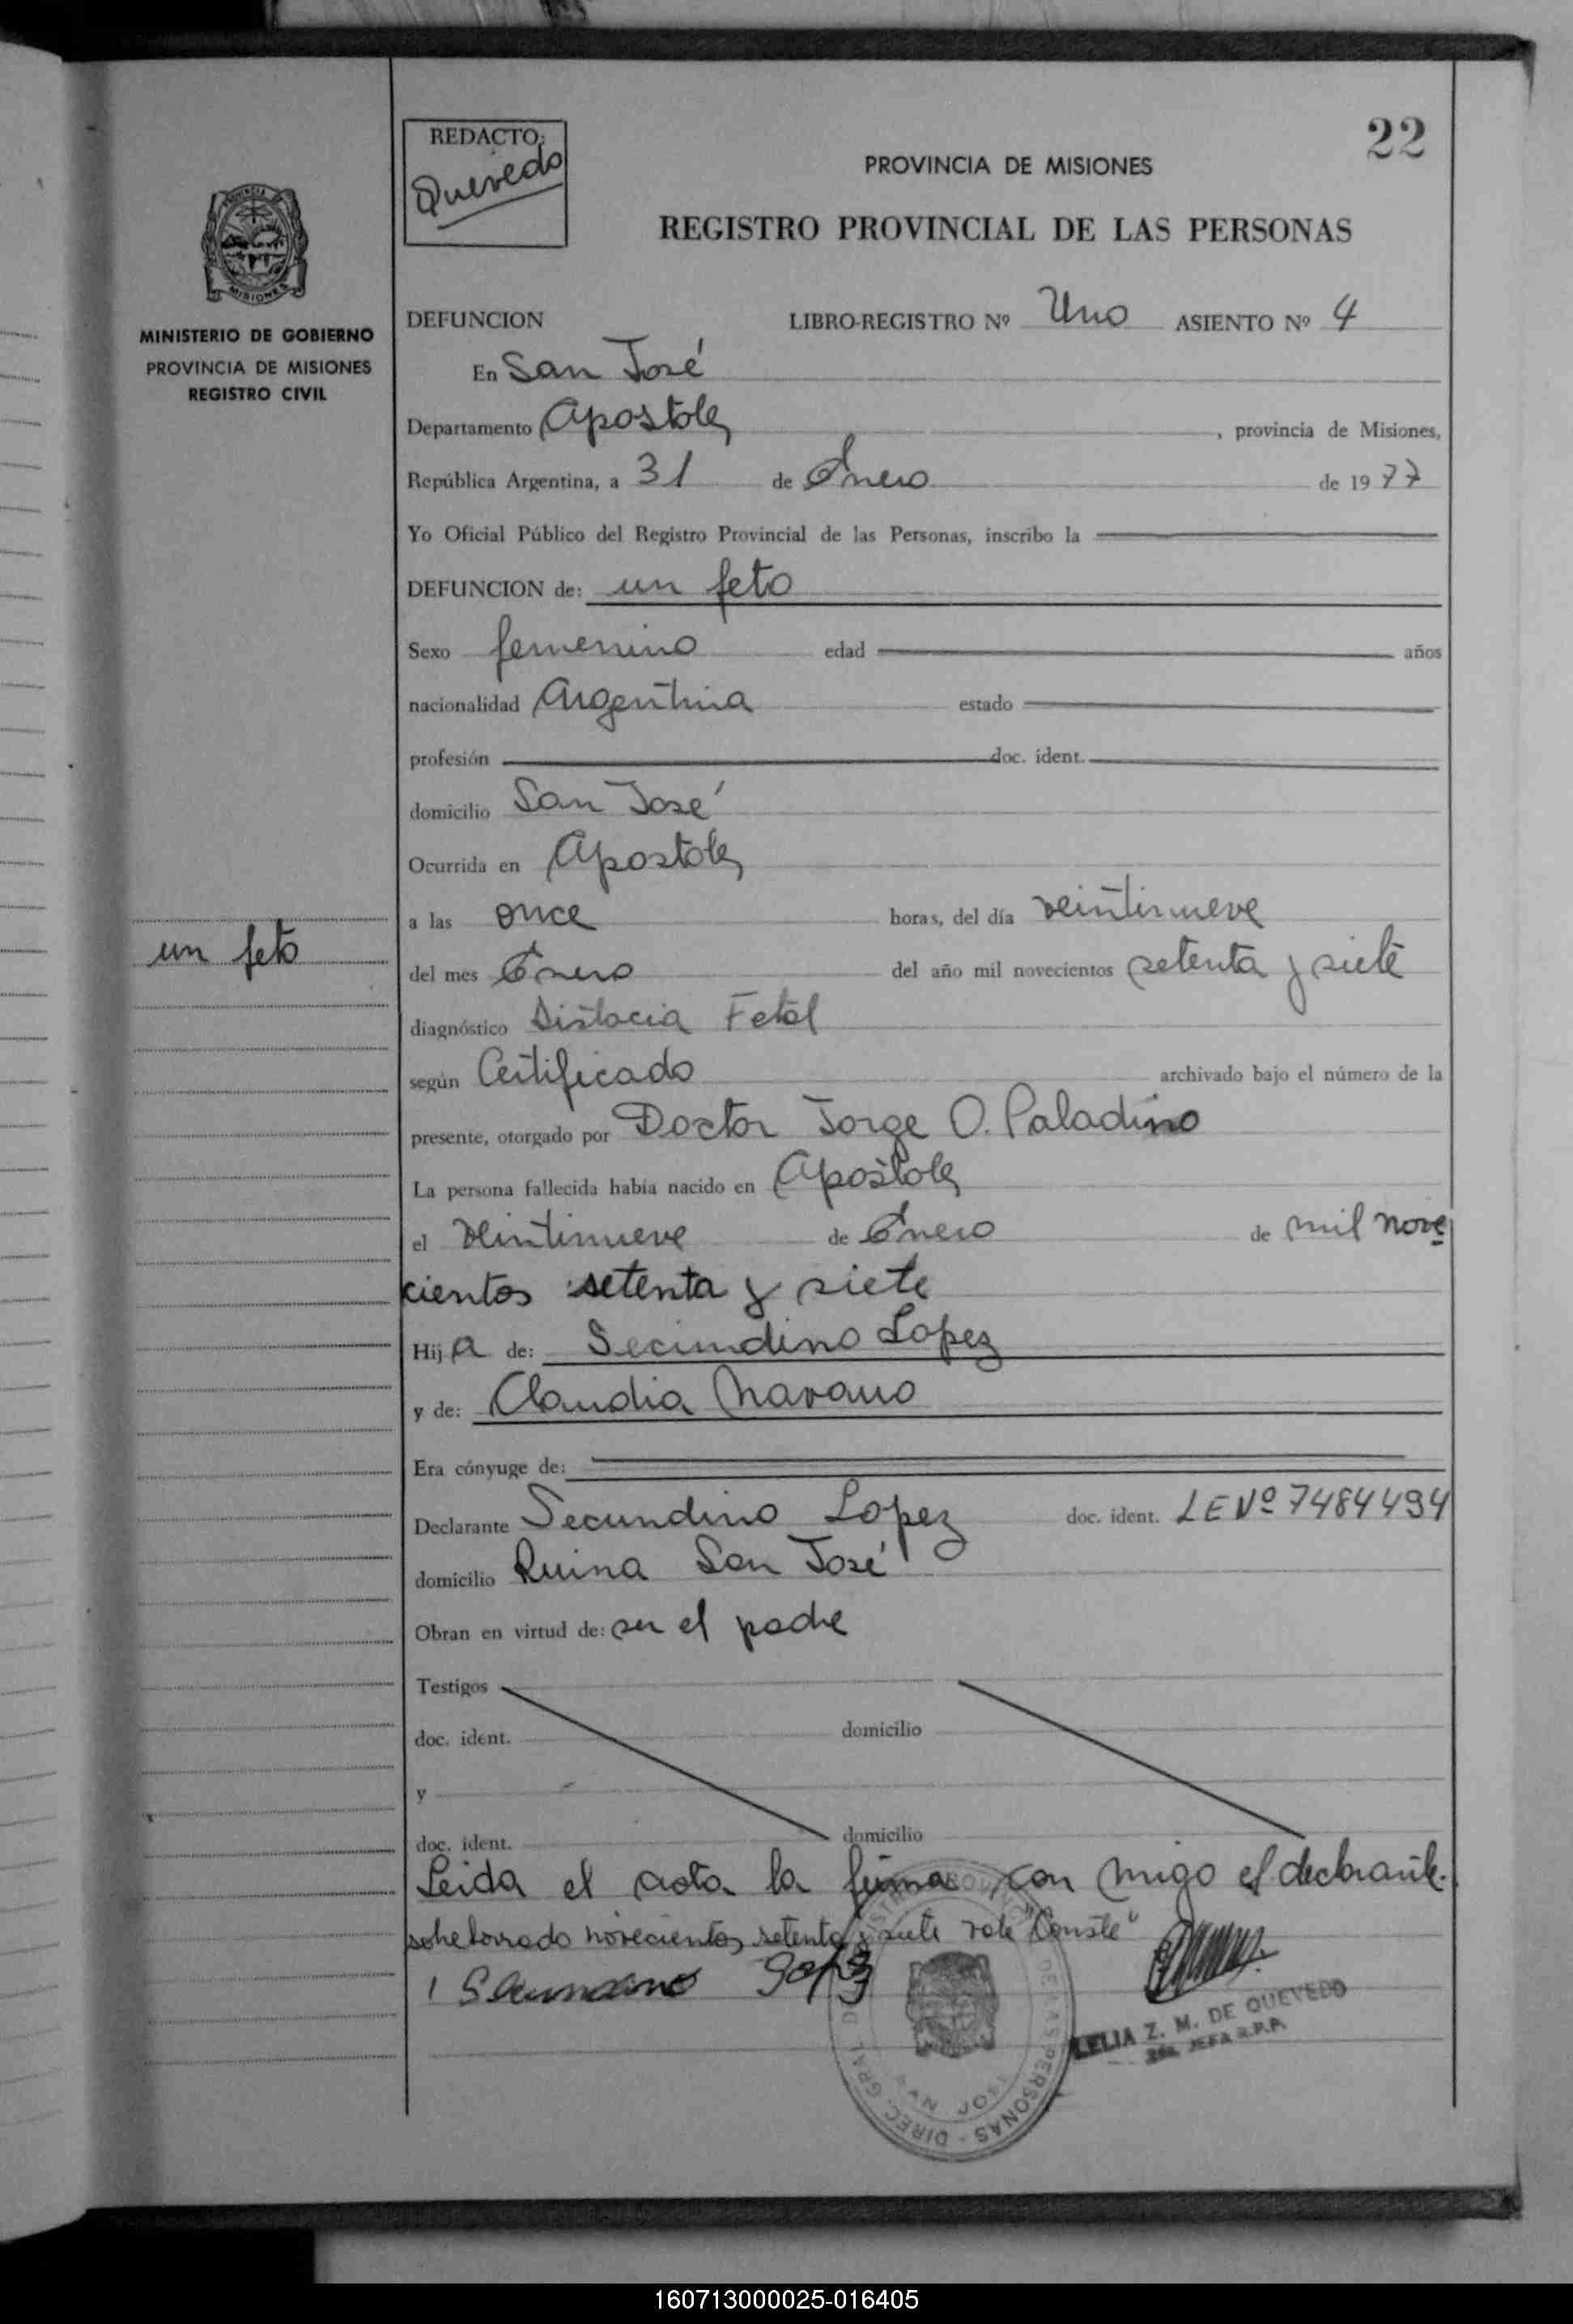 22
REDACTO:
Quevedo
PROVINCIA DE MISIONES
REGISTRO PROVINCIAL DE LAS PERSONAS
MISIONES
MINISTERIO DE GOBIERNO
PROVINCIA DE MISIONES
REGISTRO CIVIL
un feto
DEFUNCION LIBRO-REGISTRO Nº Uno ASIENTO Nº 4
En San José
Departamento Apostoles, provincia de Misiones,
República Argentina, a 31 de Enero de 1977
Yo Oficial Público del Registro Provincial de las Personas, inscribo la
DEFUNCION de: un feto
Sexo femenino edad años
nacionalidad Argentina estado
profesión doc. ident.
domicilio San José
Ocurrida en Apostoles
a las once horas, del día veintinueve
del mes Enero del año mil novecientos setenta y siete
diagnóstico Distocia Fetal
según Certificado archivado bajo el número de la
presente, otorgado por Doctor Jorge O. Paladino
La persona fallecida había nacido en Apostoles
el veintinueve de Enero de mil nove
cientos setenta y siete
Hija de: Secundino Lopez
y de: Claudia
Era cónyuge de:
Declarante Secundino Lopez doc. ident. LE Nº 7484494
domicilio Ruina San José
Obran en virtud de: ser el padre
Testigos
doc. ident. domicilio
y
doc. ident. domicilio
Leida el acta la firma con migo el declarante.
sobre borrado novecientos setenta y siete vale "Conste"
Secundino Lopez
LELIA Z. M. DE QUEVEDO
JEFA R.P.P.
DE LAS PERSONAS - DIREC. GRAL
SAN JOSE
160713000025-016405